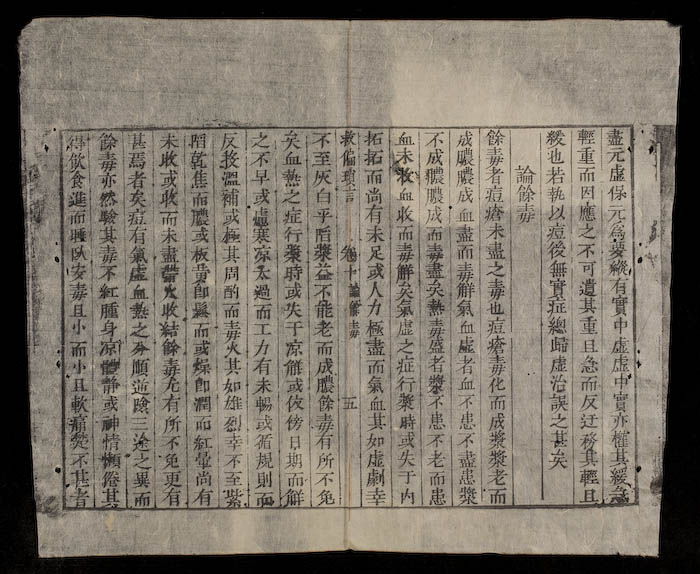 盡元虛保元為要縱有實中虛虛中實亦權其緩急
輕重而因應之不可遺其重且急而反迂務其輕且
緩也若執以痘後無實症總歸虛治誤之甚矣
論餘毒
餘毒者痘瘡未盡之毒也痘瘡毒化而成漿漿老而
成膿膿成血盡而毒解氣血虛者血不患不盡患漿
不成膿膿成而毒盡矣熱毒盛者漿不患不老而患
血未收血收而毒解矣氣虛之症行漿時或失于內
拓拓而尚有未足或人力極盡而氣血其如虛劇幸
救偏瑣言 卷十論餘毒 五
不至灰白平陷漿益不能老而成膿餘毒有所不免
矣血熱之症行漿時或失于凉解或依傍日期而解
之不早或虛寒凉太過而工力有未暢或循規則而
反投溫補或極其周酌而毒火其如雄烈幸不至紫
陷乾焦而膿或板黃卽鬆而或燥卽潤而紅暈尚有
未收或收而未盡火收結餘毒尤有所不免更有
甚焉者矣痘有氣虛血熱之分順逆險三途之異而
餘毒亦然驗其毒不紅腫身凉體靜或神情懶倦其
得飲食進而睡臥安毒且小而小且軟痛楚不甚者